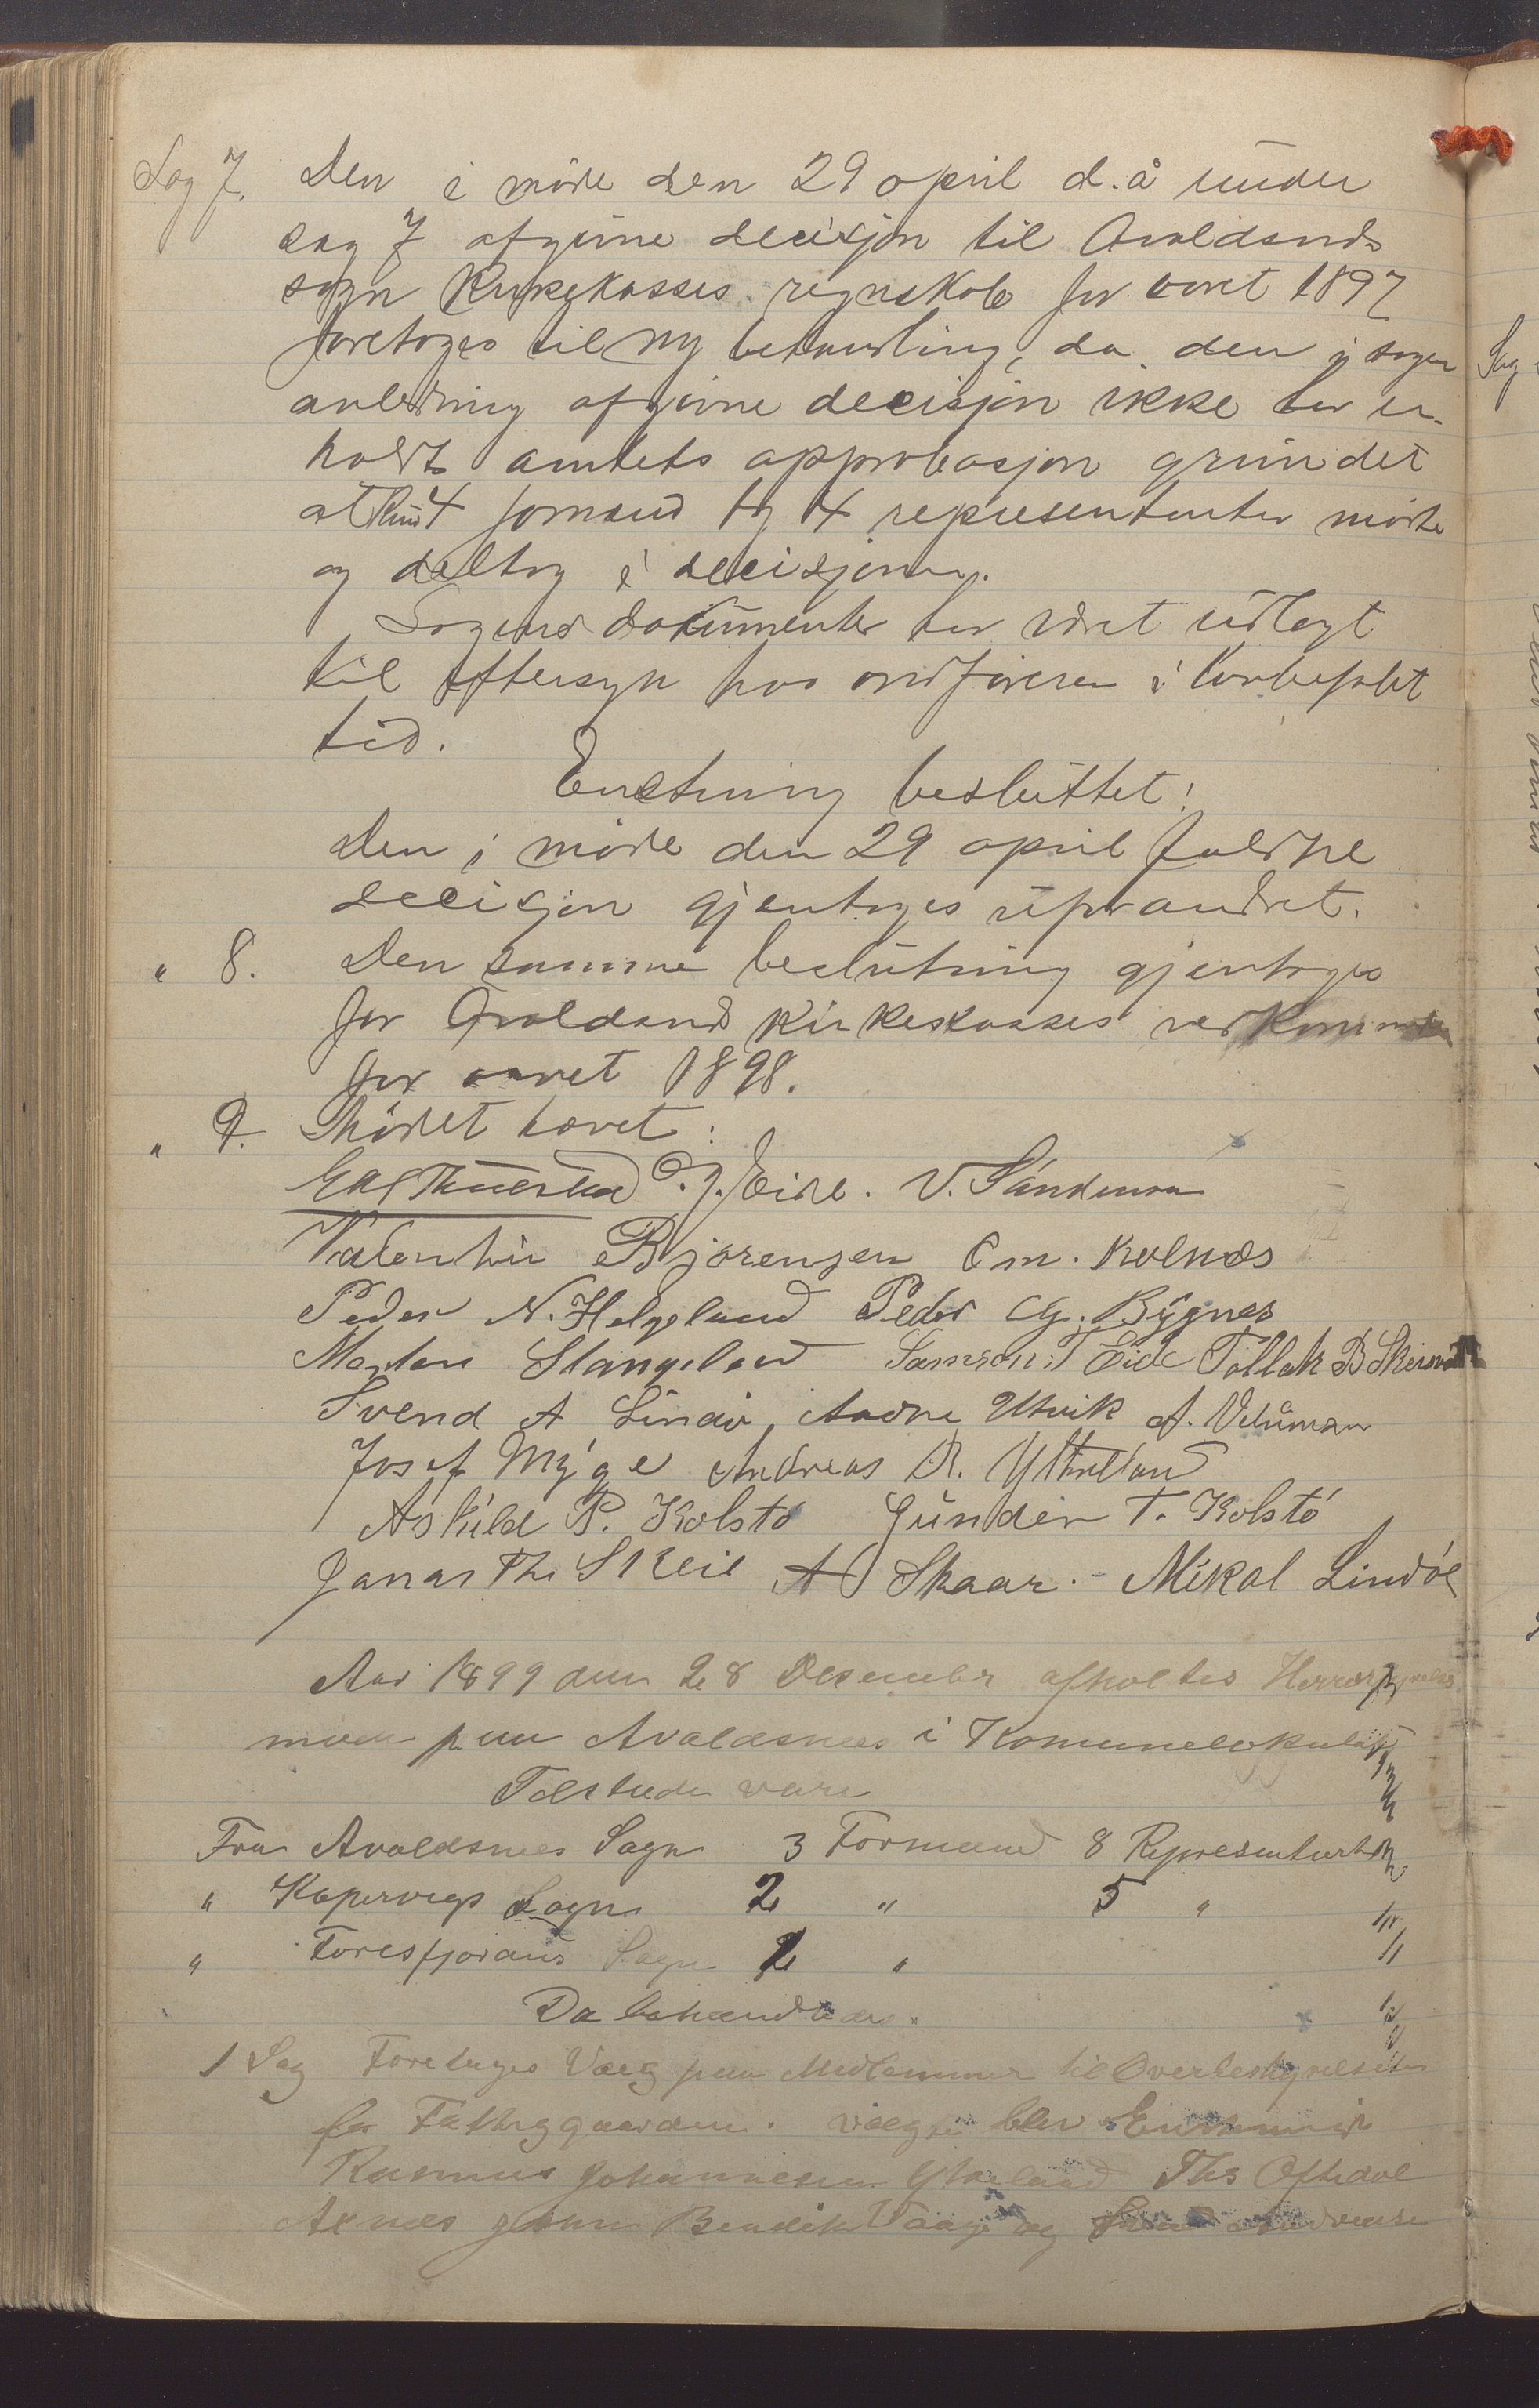 Sag 7. Den i möde den 29 april d. å under
sag 7 afgivne decisjon til Avaldsnds
sogn Kirkekasses regnskab for aaret 1897
foretoges til ny behandling, da den i sagen
anledning afgivne decisjon ikke har er-
holdt amtets approbasjon grundet
at kun 4 formænd og 4 representanter mödte
og deltog i decisjonen.
Sagens dokumenter har været udlagt
til eftersyn hos ordföreren i lovbefalet
tid.
Enstemmig besluttet:
Den i möde den 29 april fældte
decisjon gjentages uforandret.
" 8. Den samme beslutning gjentages
for Avaldsnds Kirkeskasses vedkommende
for aaret 1898.
" 9. Mödet hævet:
O. J. Eide. V. Sandersen
Valentin Bjørensen O m. Kolnæs
Peder N. Helgeland Peder G. Bygnes
Morten Stangeland Samson T Eide Tollak B
Svend A Lindö, Aadne Utvik A.
Josef Myge Andreas R. Ytreland
Askild P. Kolstö Gunder T. Kolstö
Jonas Th Skeie A Skaar. - Mikal Lindöe
Aar 1899 den 28 Desember afholtes Herredstyrelses
möde paa Avaldsnes i Komunelokalet
Tilstede vare
Fra Avaldsnes Sogn 3 Formænd 8 Representanter
" Kopervigs Sogn 2 " 5 "
" Førresfjorans Sogn 2 "
Da behandledes.
1 Sag Foretages Valg paa Medlemmer til Overbestyrelsen
for Fattiggaarden. valgte blev Enstemmig
Rasmus Johannesen Ytreland Ths Oftedal
Bendik Vaage og